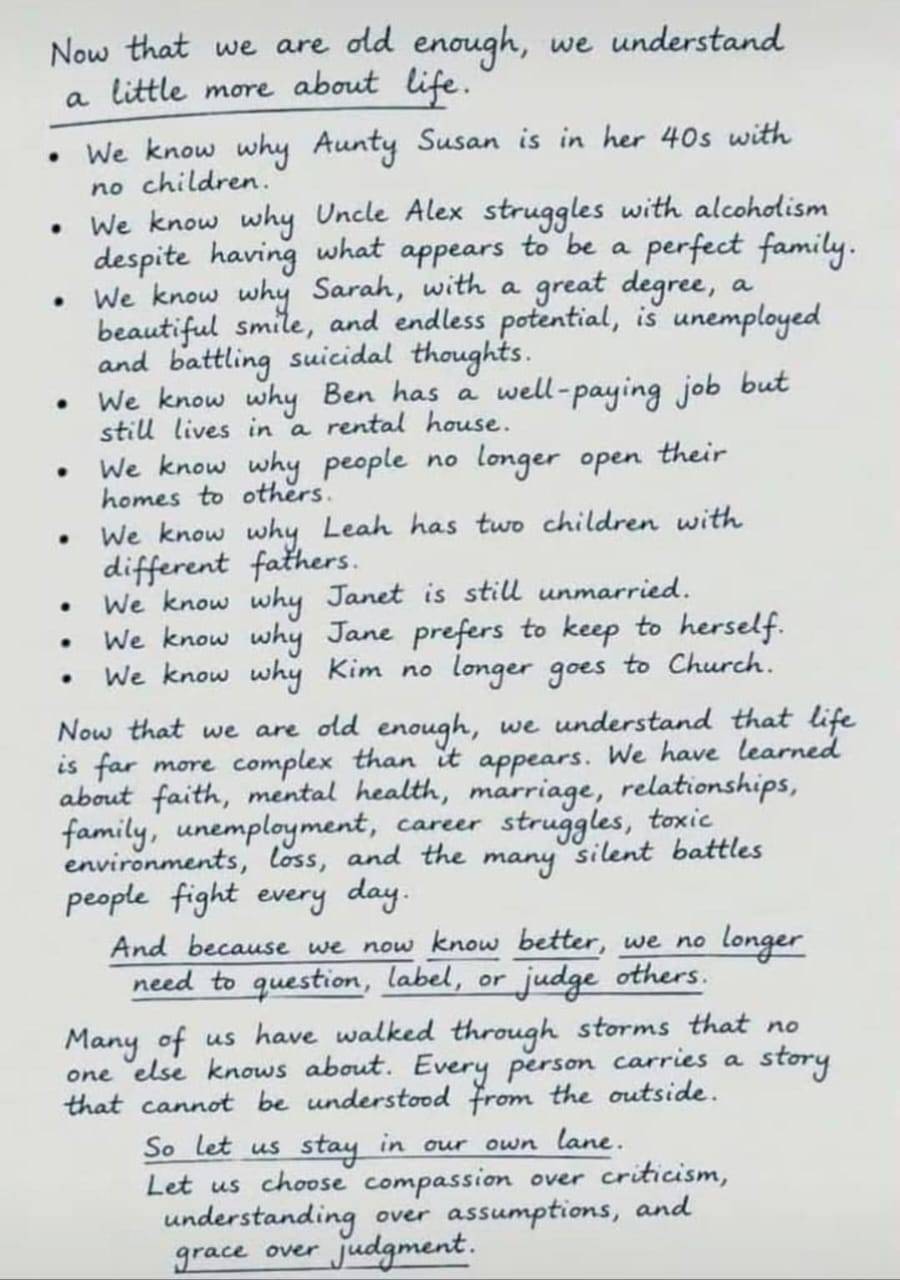 Now that we are old enough, we understand
a little more about life.
• We know why Aunty Susan is in her 40s with
no children.
• We know why Uncle Alex struggles with alcoholism
despite having what appears to be a perfect family.
• We know why Sarah, with a great degree, a
beautiful smile, and endless potential, is unemployed
and battling suicidal thoughts.
• We know why Ben has a well-paying job but
still lives in a rental house.
• We know why people no longer open their
homes to others.
• We know why Leah has two children with
different fathers.
• We know why Janet is still unmarried.
• We know why Jane prefers to keep to herself.
• We know why Kim no longer goes to Church.
Now that we are old enough, we understand that life
is far more complex than it appears. We have learned
about faith, mental health, marriage, relationships,
family, unemployment, career struggles, toxic
environments, loss, and the many silent battles
people fight every day.
And because we now know better, we no longer
need to question, label, or judge others.
Many of us have walked through storms that no
one else knows about. Every person carries a story
that cannot be understood from the outside.
So let us stay in our own lane.
Let us choose compassion over criticism,
understanding over assumptions, and
grace over judgment.